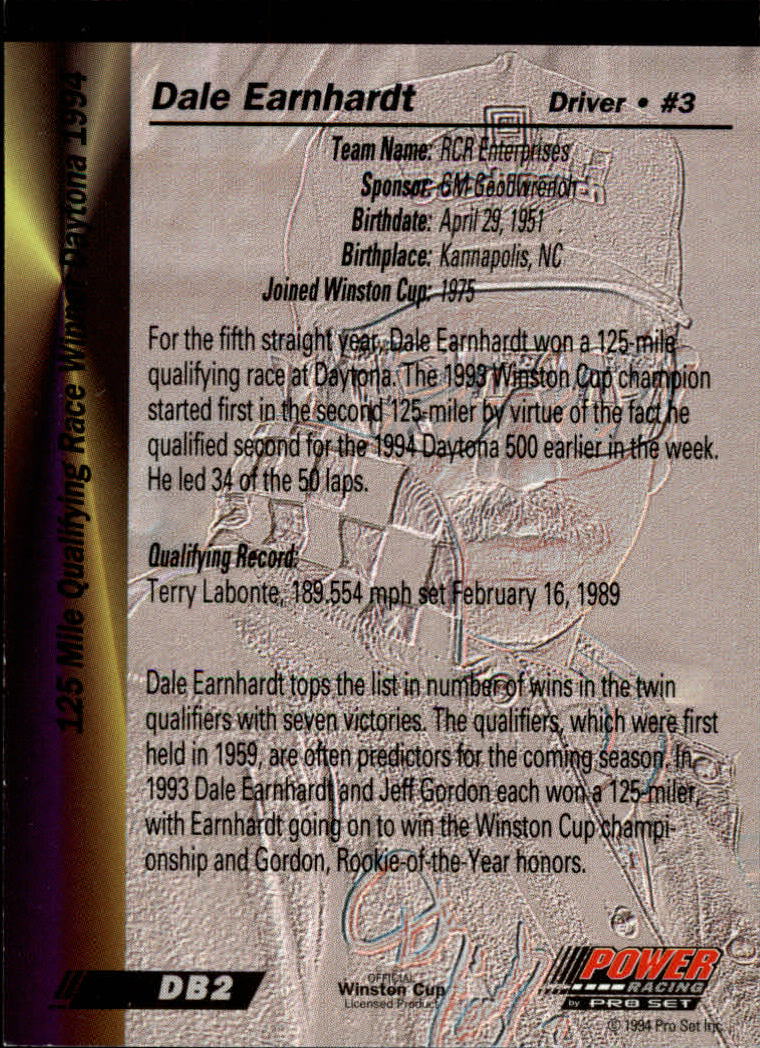 Dale Earnhardt Driver • #3
Team Name: RCR Enterprises
Sponsor: GM Goodwrench
Birthdate: April 29, 1951
Birthplace: Kannapolis, NC
Joined Winston Cup: 1975
For the fifth straight year, Dale Earnhardt won a 125-mile
qualifying race at Daytona. The 1993 Winston Cup champion
started first in the second 125-miler by virtue of the fact he
qualified second for the 1994 Daytona 500 earlier in the week.
He led 34 of the 50 laps.
Qualifying Record:
Terry Labonte, 189.554 mph set February 16, 1989
Dale Earnhardt tops the list in number of wins in the twin
qualifiers with seven victories. The qualifiers, which were first
held in 1959, are often predictors for the coming season. In
1993 Dale Earnhardt and Jeff Gordon each won a 125-miler,
with Earnhardt going on to win the Winston Cup champi-
onship and Gordon, Rookie-of-the-Year honors.
125 Mile Qualifying Race Winner Daytona 1994
DB2
OFFICIAL
Winston Cup
Licensed Product
POWER
RACING
by PRO SET
© 1994 Pro Set Inc.